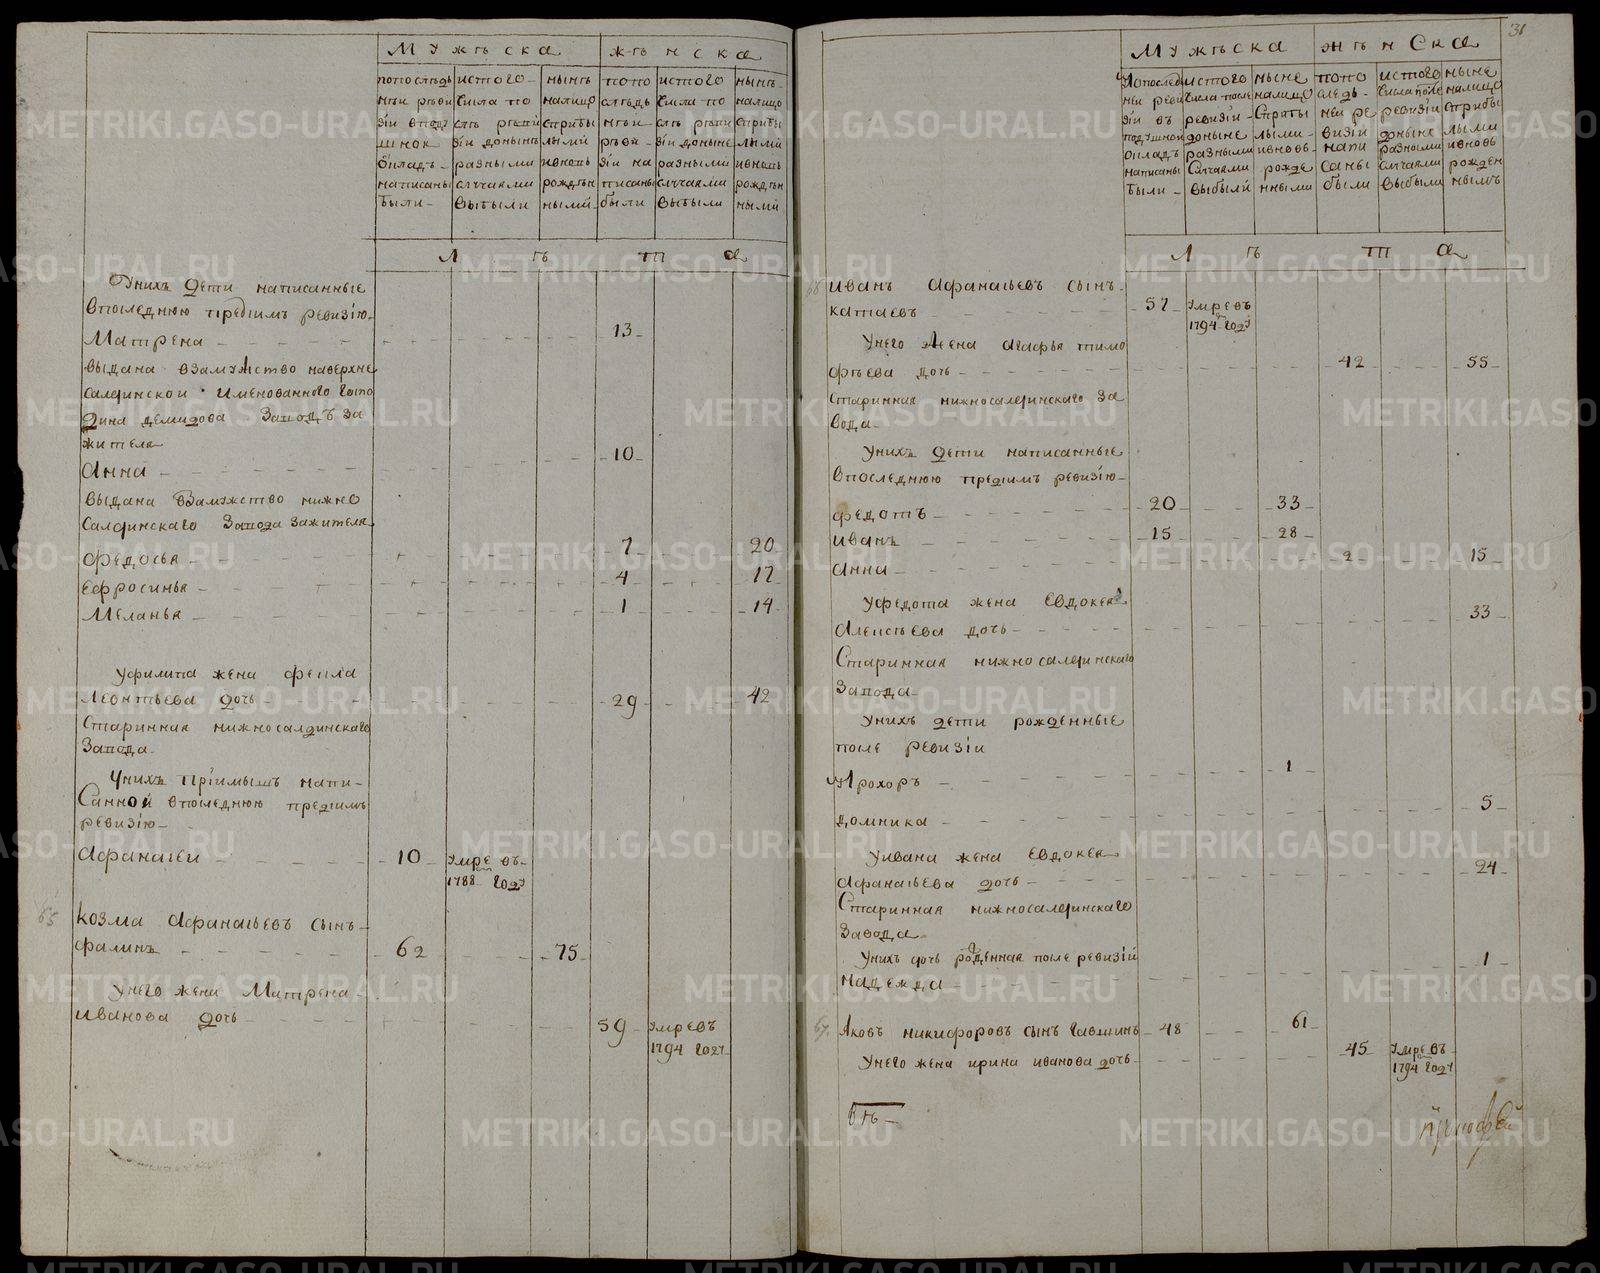 Мужеска
женска
попослѣдь
нѣи рѣви
зіи вподу
шнок
окладъ
написаны
были
истого
числа по
слѣ рѣви
зіи донынѣ
разными
случаями
выбыли
нынѣ
налицо
сприбы
лыми
ивновь
рождѣн
ными
попо
слѣдь
нѣи
рѣви
зіи на
писаны
были
истого
числа по
слѣ рѣви
зіи донынѣ
разными
случаями
выбыли
нынѣ
налицо
сприбы
лыми
ивновь
рождѣн
ными
Л ѣ т а
Унихъ дети написанные
впоследнюю предъимъ ревизію
Матрена 13
выдана взамужство наверхне
салдинской именованного госпо
дина демидова заводъ за
жителя
Анна 10
выдана взамужство нижно
салдинскаго завода зажителя
Федосья 7 20
Ефросинья 4 17
Меланья 1 14
уфилипа жена фекла
Леонтьева дочь 29 42
Старинная нижносалдинскаго
завода
Унихъ пріимышъ напи
санной впоследнюю предъимъ
ревизію
Афанасеи 10 умре въ
1788 году
65 Козма Афанасьевъ сынъ
фалинъ 62 75
Унего жена Матрена
иванова дочь 59 умре въ
1794 году
31
Мужеска
женска
Попослед
неи реви
зіи въ
подушной
окладъ
написаны
были
истого
числа после
ревизіи
доныне
разными
случаями
выбыли
ныне
налицо
сприбы
лыми
ивновь
рожде
нными
попо
следь
неи ре
визіи
напи
саны
были
истого
числа после
ревизіи
доныне
разными
случаями
выбыли
ныне
налицо
сприбы
лыми
ивновь
рожден
нымъ
Л ѣ т а
66 Иванъ Афанасьевъ сынъ
катаевъ 57 умре въ
1794 году
Унего жена агафья тимо
фѣева дочь 42 55
Старинная нижносалдинскаго за
вода
Унихъ дети написанные
впоследнюю предъимъ ревизію
федотъ 20 33
иванъ 15 28
анна 2 15
Уфедота жена Евдокея 33
Алексѣева дочь
Старинная нижносалдинскаго
завода
Унихъ дети рожденные
после ревизіи
Прохоръ 1
домника 5
Уивана жена Евдокея 24
Афанасьева дочь
Старинная нижносалдинскаго
завода
Унихъ дочь рожденная после ревизіи 1
надежда
67 Яковъ никифоровъ сынъ гавшинъ 48 61
Унего жена ирина иванова дочь 45 умре въ
1794 году